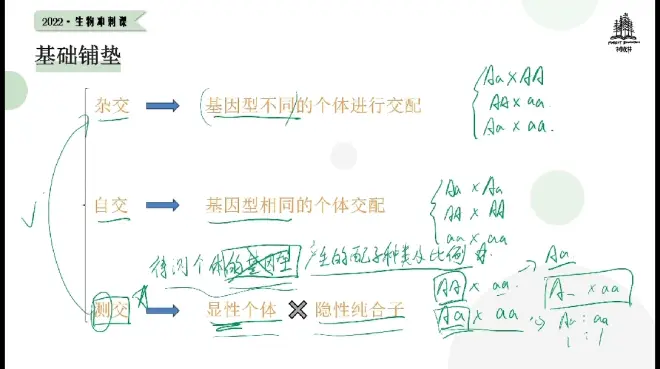 2022·生物冲刺课
基础铺垫
杂交 基因型不同的个体进行交配
Aa × AA
AA × aa
Aa × aa
自交 基因型相同的个体交配
Aa × Aa
AA × AA
aa × aa
待测个体的基因型 产生的配子种类及比例
测交 显性个体 隐性纯合子
AA × aa → Aa
Aa × aa → Aa : aa
1 : 1
A_ × aa